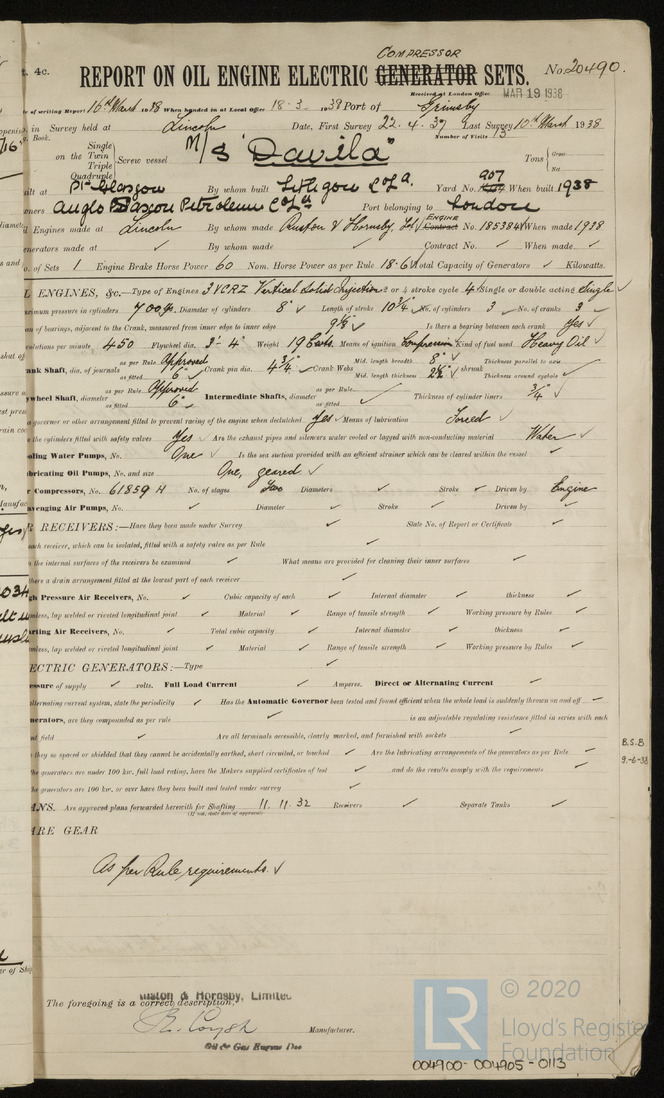 COMPRESSOR
t. 4c. REPORT ON OIL ENGINE ELECTRIC GENERATOR SETS. No. 20490.
Received at London Office MAR 19 1938
te of writing Report 16th March 1938 When handed in at Local Office 18.3.1938 Port of Grimsby
in Survey held at Lincoln Date, First Survey 22.4.37 Last Survey 10th March 1938
Book. Number of Visits 13
on the Single Twin Triple Quadruple Screw vessel M/S "Davila" Tons Gross Net
ilt at Pt Glasgow By whom built Lithgow Co Ld. Yard No. 907 When built 1938
ners Anglo Saxon Petroleum Co Ld Port belonging to London
Engines made at Lincoln By whom made Ruston & Hornsby, Ld ENGINE Contract No. 185384 When made 1938
enerators made at ✓ By whom made ✓ Contract No. ✓ When made ✓
o. of Sets 1 Engine Brake Horse Power 60 Nom. Horse Power as per Rule 18.6 Total Capacity of Generators ✓ Kilowatts.
L ENGINES, &c.—Type of Engines 3 VCRZ Vertical Solid Injection 2 or 4 stroke cycle 4 Single or double acting Single
aximum pressure in cylinders 700 Diameter of cylinders 8" Length of stroke 10¾" No. of cylinders 3 No. of cranks 3
an of bearings, adjacent to the Crank, measured from inner edge to inner edge 9½" Is there a bearing between each crank Yes
evolutions per minute 450 Flywheel dia. 3'-4" Weight 19 Cwts. Means of ignition Compression Kind of fuel used Heavy Oil
ank Shaft, dia. of journals as per Rule Approved as fitted 6" Crank pin dia. 4¾" Crank Webs Mid. length breadth 8" Mid. length thickness shrunk Thickness parallel to axis Thickness around eyehole
ywheel Shaft, diameter as per Rule Approved as fitted 6" Intermediate Shafts, diameter as per Rule as fitted Thickness of cylinder liners ¾"
a governor or other arrangement fitted to prevent racing of the engine when declutched Yes Means of lubrication Forced
e the cylinders fitted with safety valves Yes Are the exhaust pipes and silencers water cooled or lagged with non-conducting material Water
oling Water Pumps, No. One Is the sea suction provided with an efficient strainer which can be cleared within the vessel ✓
ubricating Oil Pumps, No. and size One, geared
r Compressors, No. 61859 H No. of stages Two Diameters ✓ Stroke ✓ Driven by Engine
avenging Air Pumps, No. ✓ Diameter ✓ Stroke ✓ Driven by ✓
R RECEIVERS:—Have they been made under Survey ✓ State No. of Report or Certificate ✓
each receiver, which can be isolated, fitted with a safety valve as per Rule ✓
n the internal surfaces of the receivers be examined ✓ What means are provided for cleaning their inner surfaces ✓
there a drain arrangement fitted at the lowest part of each receiver ✓
gh Pressure Air Receivers, No. ✓ Cubic capacity of each ✓ Internal diameter ✓ thickness ✓
mless, lap welded or riveted longitudinal joint ✓ Material ✓ Range of tensile strength ✓ Working pressure by Rules ✓
arting Air Receivers, No. ✓ Total cubic capacity ✓ Internal diameter ✓ thickness ✓
mless, lap welded or riveted longitudinal joint ✓ Material ✓ Range of tensile strength ✓ Working pressure by Rules ✓
ECTRIC GENERATORS:—Type ✓
essure of supply ✓ volts. Full Load Current ✓ Amperes. Direct or Alternating Current ✓
alternating current system, state the periodicity ✓ Has the Automatic Governor been tested and found efficient when the whole load is suddenly thrown on and off ✓
nerators, are they compounded as per rule ✓ is an adjustable regulating resistance fitted in series with each
nt field ✓ Are all terminals accessible, clearly marked, and furnished with sockets ✓
they so spaced or shielded that they cannot be accidentally earthed, short circuited, or touched ✓ Are the lubricating arrangements of the generators as per Rule ✓
the generators are under 100 kw. full load rating, have the Makers supplied certificates of test ✓ and do the results comply with the requirements ✓
the generators are 100 kw. or over have they been built and tested under survey ✓
B.S.B
9-6-38
ANS. Are approved plans forwarded herewith for Shafting 11.11.32 Receivers ✓ Separate Tanks ✓
(If not, state date of approval)
ARE GEAR
As per Rule requirements.
The foregoing is a correct description,
uston & Hornsby, Limited
Manufacturer.
Oil & Gas Engine Dep
LR © 2020
Lloyd's Register
Foundation
004900-004905-0113